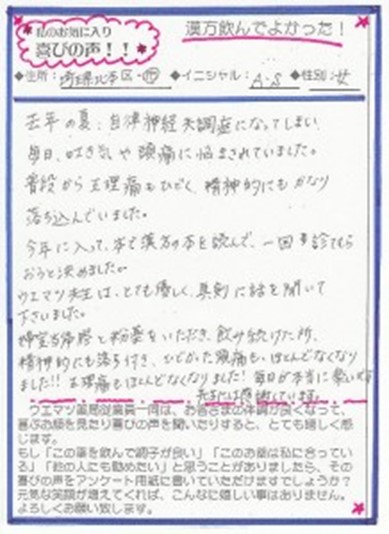 私のお気に入り
喜びの声！！
漢方飲んでよかった！
◆住所：埼玉県北本区・市 ◆イニシャル：A・S ◆性別：女
去年の夏、自律神経失調症になってしまい
毎日、吐き気や頭痛に悩まされていました。
普段から生理痛もひどく、精神的にもかなり
落ち込んでいました。
今年に入って、本で漢方の本を読んで、一回診てもら
おうと決めました。
ウエマツ先生は、とても優しく、真剣に話を聞いて
下さいました。
帰宅当帰膠と粉薬をいただき、飲み続けた所、
精神的にも落ち付き、ひどかった頭痛も、ほとんどなくなり
ました!! 生理痛もほんどなくなりました! 毎日が本当に楽しいです
先生には感謝しています。
ウエマツ薬局従業員一同は、お客さまの体調が良くなって、
喜ぶお顔を見たり喜びの声を聞いたりすると、とても嬉しく感
じます。
もし「この薬を飲んで調子が良い」「このお薬は私に合ってい
る」「他の人にも勧めたい」と思うことがありましたら、その
喜びの声をアンケート用紙に書いていただけますでしょうか？
元気な笑顔が増えてくれれば、こんなに嬉しい事はありません。
よろしくお願い致します。